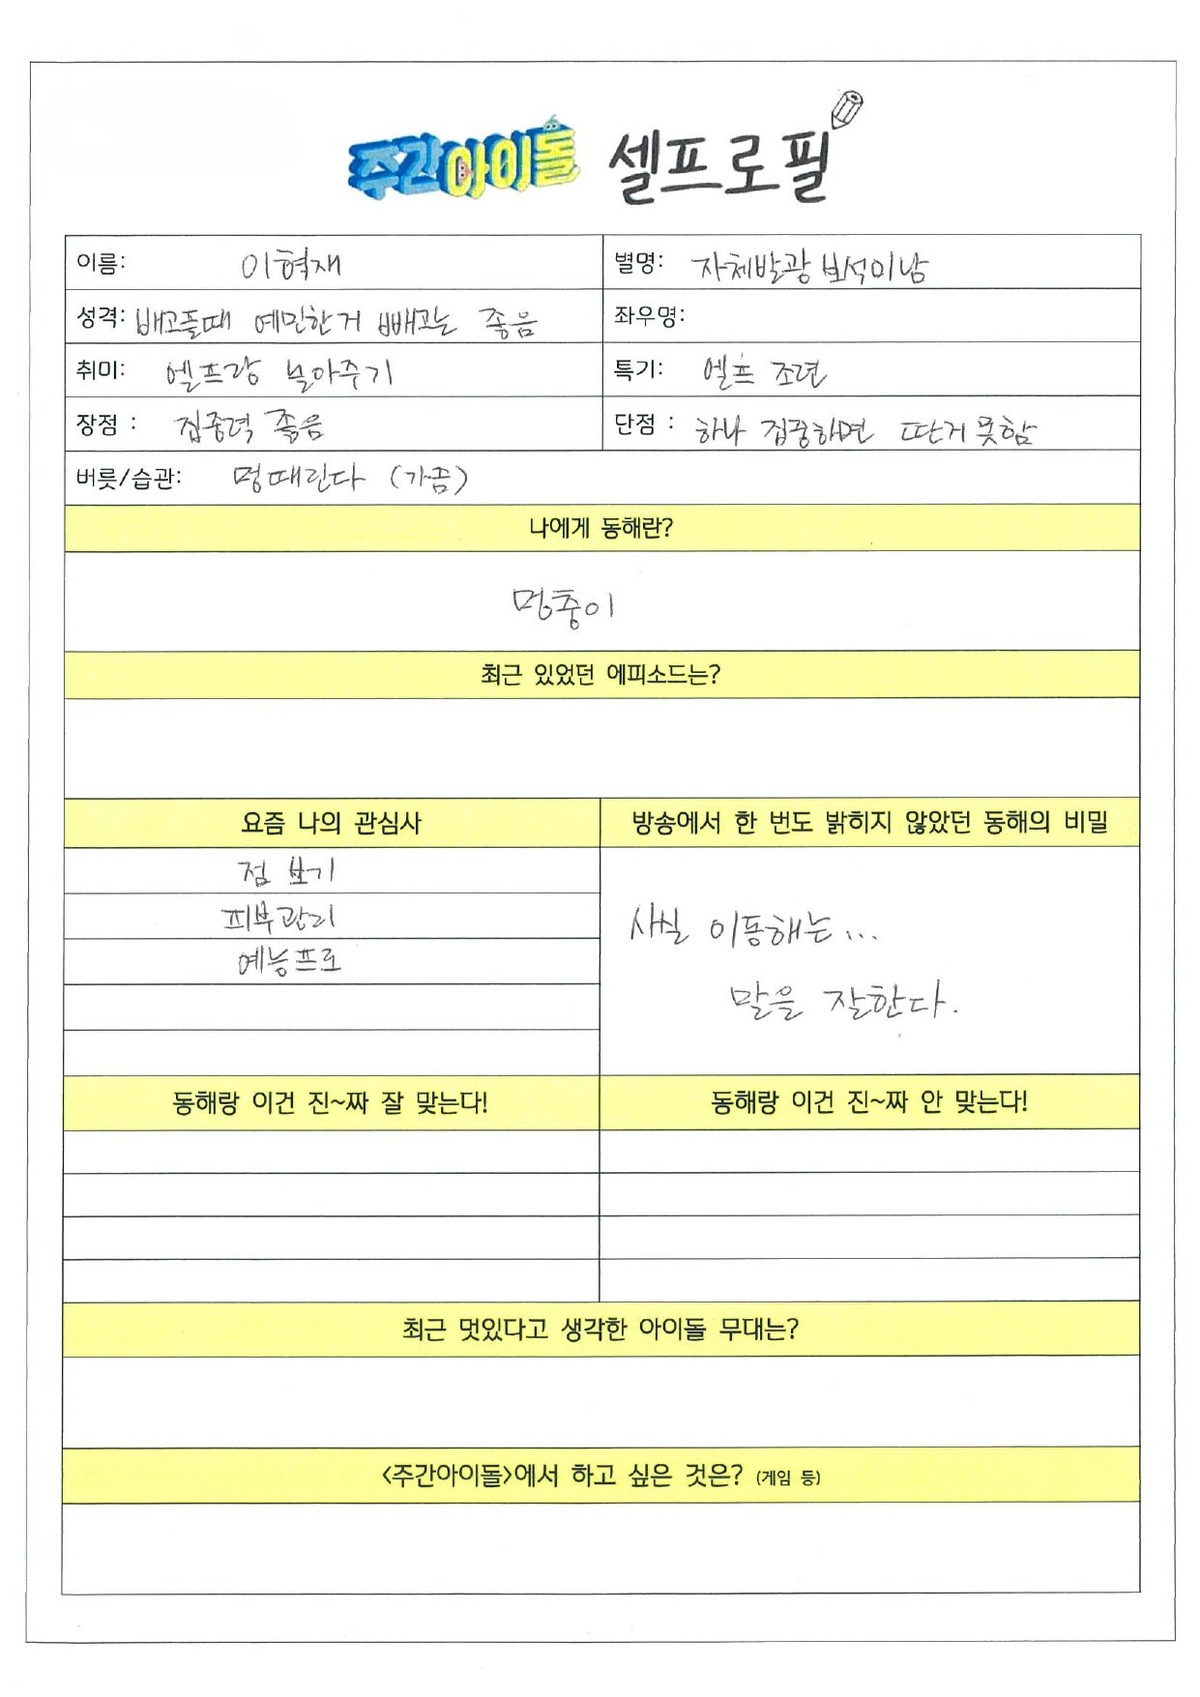 주간아이돌 셀프로필
이름: 이혁재
별명: 자체발광 보석미남
성격: 배고플때 예민한거 빼고는 좋음
좌우명:
취미: 엘프랑 놀아주기
특기: 엘프 조련
장점 : 집중력 좋음
단점 : 하나 집중하면 딴거 못함
버릇/습관: 멍때린다 (가끔)
나에게 동해란?
멍충이
최근 있었던 에피소드는?
요즘 나의 관심사
방송에서 한 번도 밝히지 않았던 동해의 비밀
점 보기
피부관리
예능프로
사실 이동해는...
말을 잘한다.
동해랑 이건 진~짜 잘 맞는다!
동해랑 이건 진~짜 안 맞는다!
최근 멋있다고 생각한 아이돌 무대는?
<주간아이돌>에서 하고 싶은 것은? (게임 등)